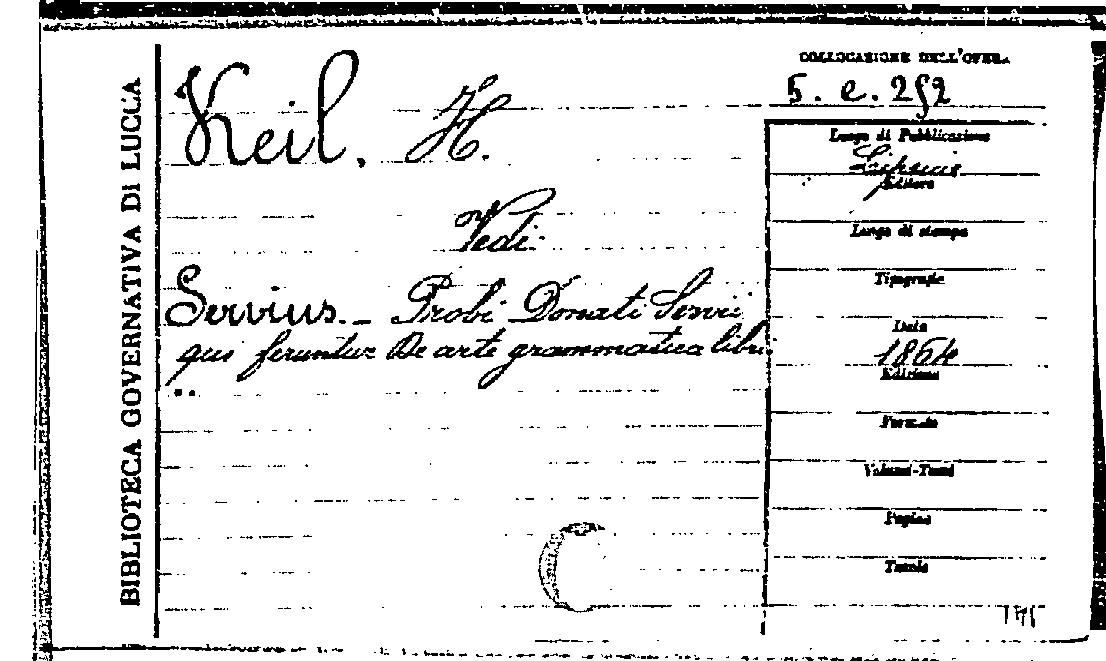 BIBLIOTECA GOVERNATIVA DI LUCCA
COLLOCAZIONE DELL'OPERA
5. e. 252
Keil. H.
Vedi:
Servius. _ Probi Donati Servii
qui feruntur De arte grammatica libri
..
Luogo di Pubblicazione
Lipsiae
Editore
Luogo di stampa
Tipografia
Data
1864
Edizione
Formato
Volumi-Tomi
Pagine
Tavole